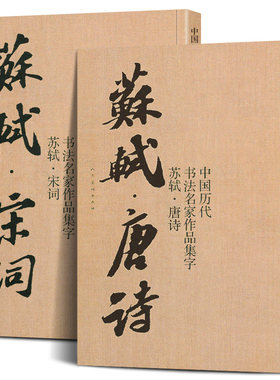 蘇軾·唐诗
中国历代
书法名家作品集字
苏轼·唐诗
蘇軾·宋词
书法名家作品集字
苏轼·宋词
中国